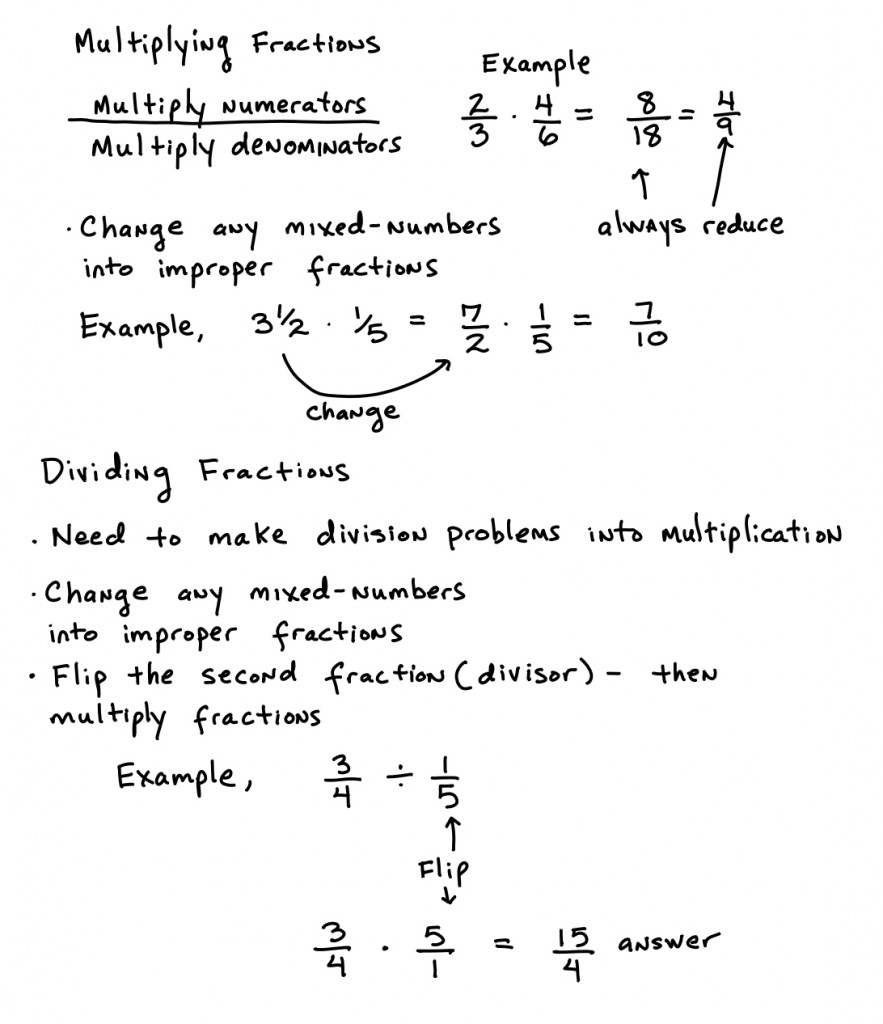 Multiplying Fractions
Example
Multiply numerators
Multiply denominators
2/3 · 4/6 = 8/18 = 4/9
always reduce
· Change any mixed-numbers
into improper fractions
Example, 3 1/2 · 1/5 = 7/2 · 1/5 = 7/10
change
Dividing Fractions
· Need to make division problems into multiplication
· Change any mixed-numbers
into improper fractions
· Flip the second fraction (divisor) - then
multiply fractions
Example, 3/4 ÷ 1/5
Flip
3/4 · 5/1 = 15/4 answer